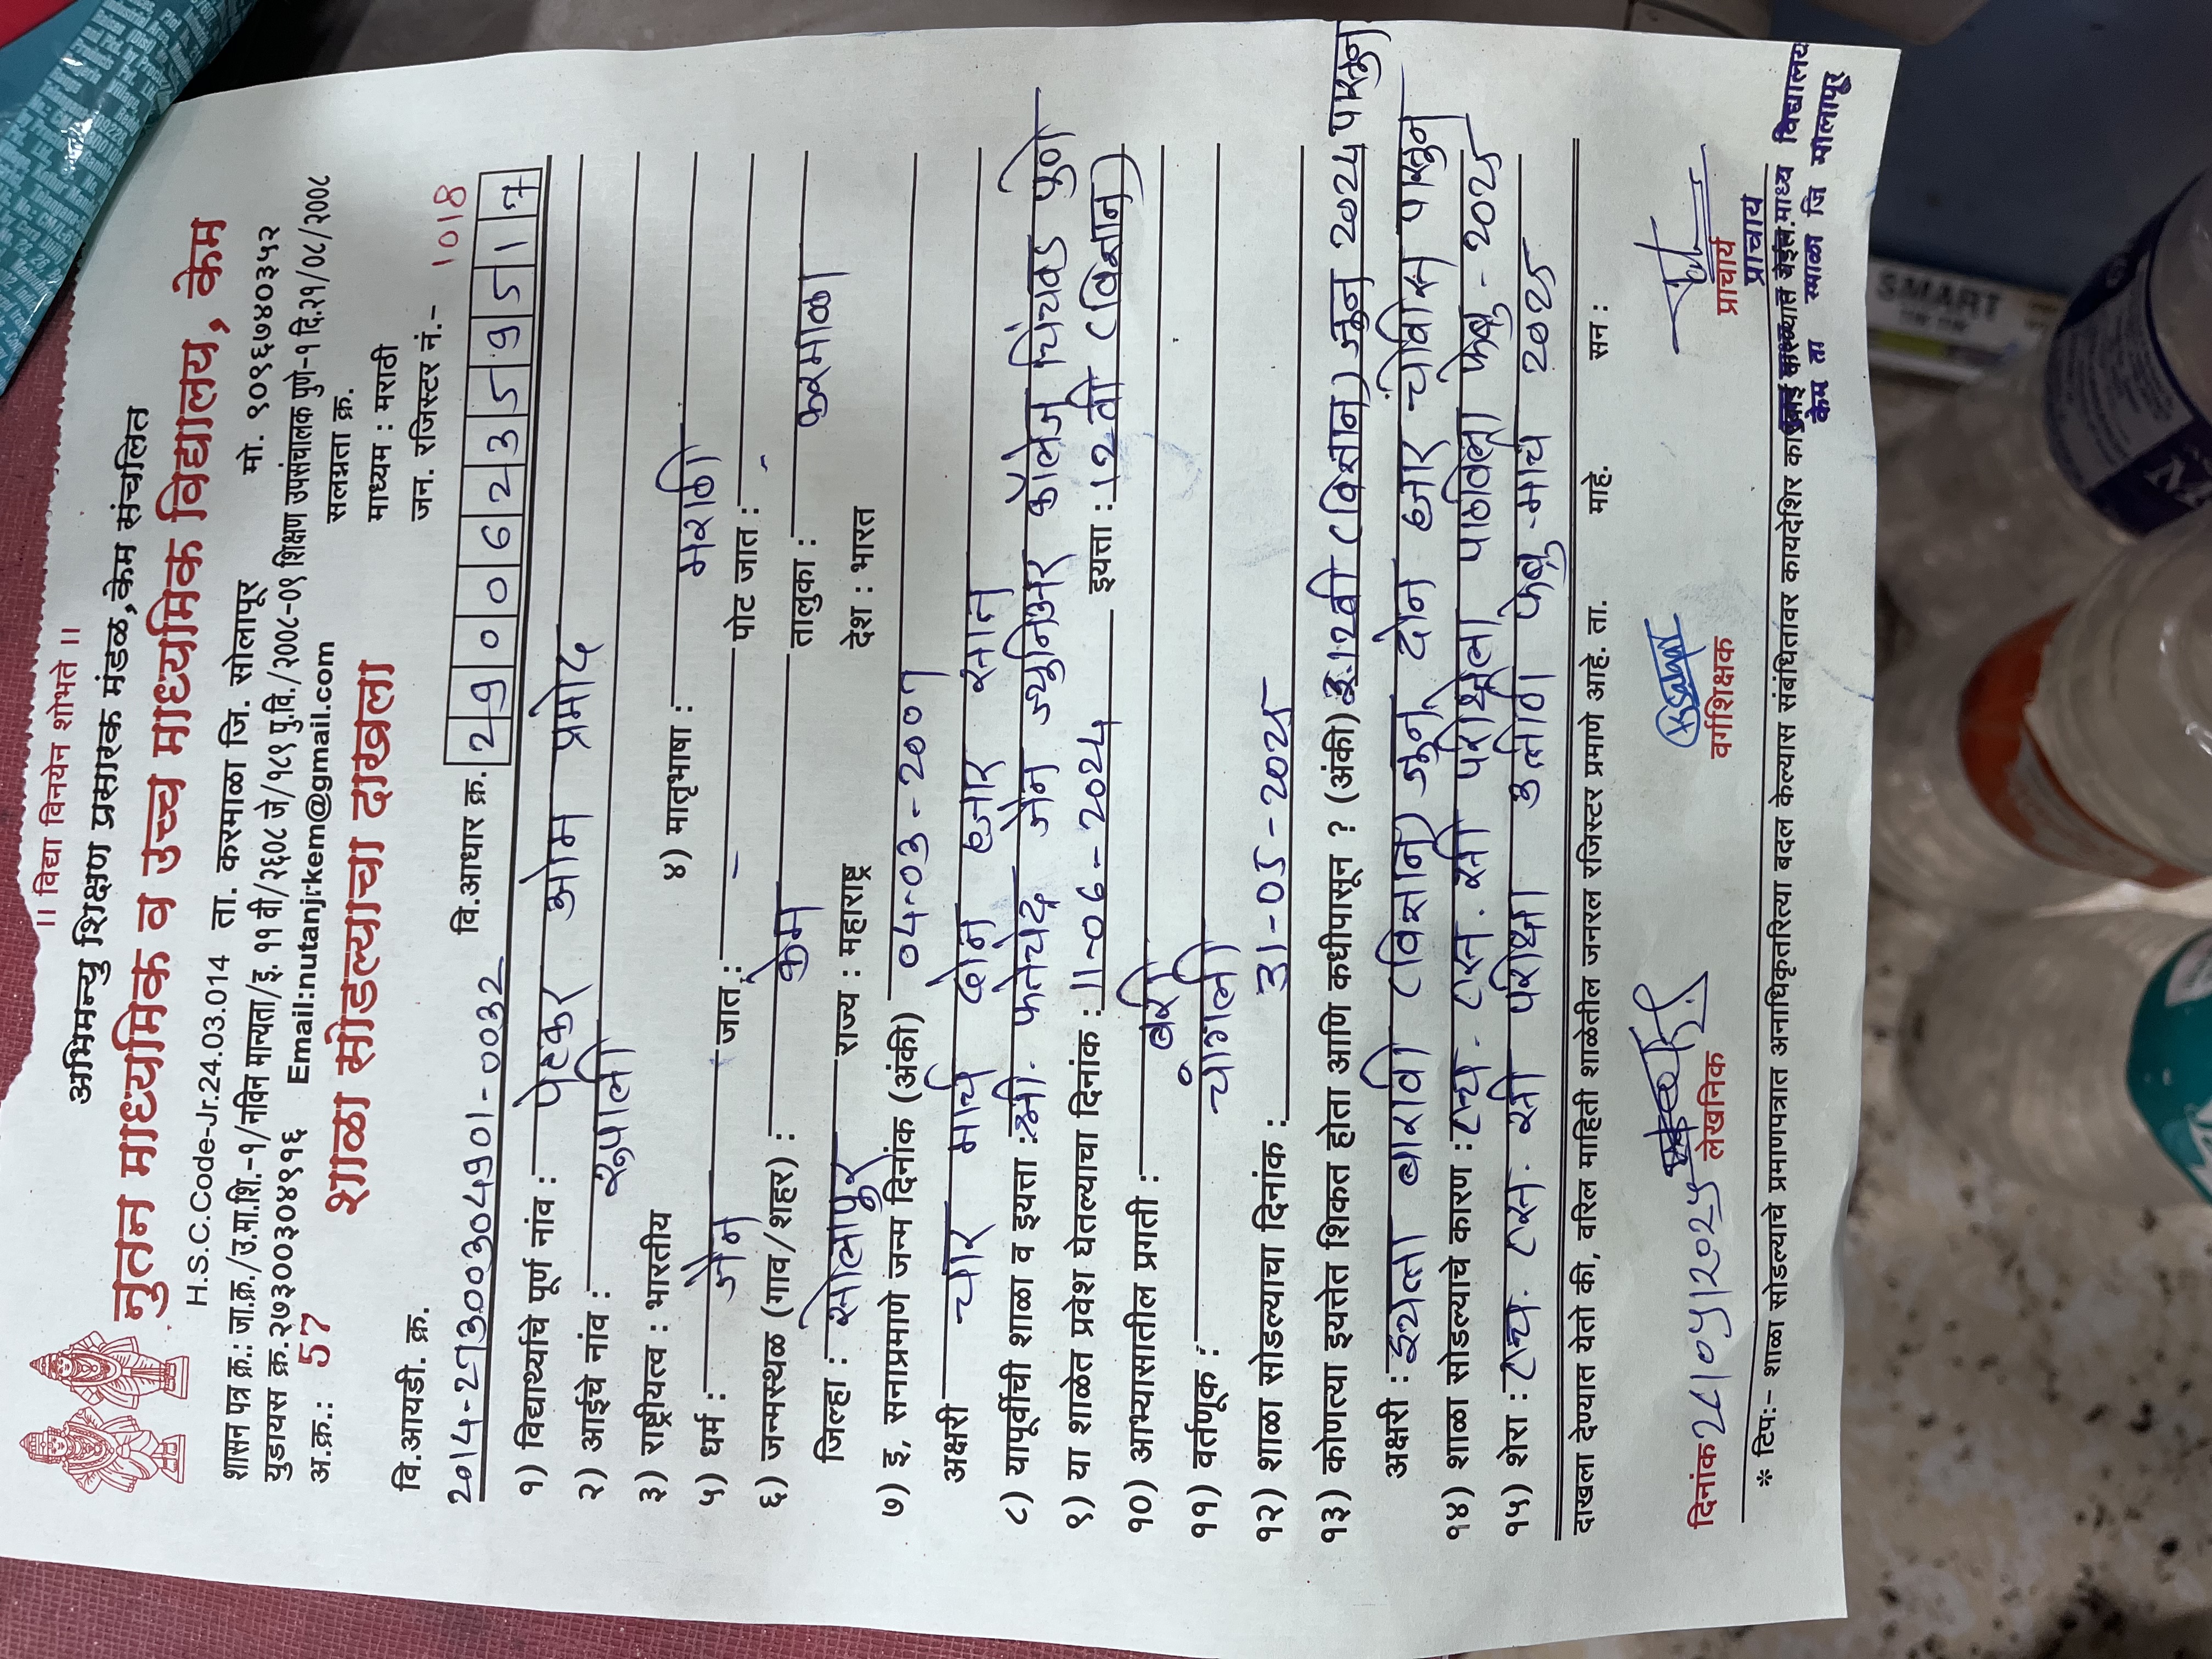 ॥ विद्या विनयेन शोभते ॥
अभिमन्यु शिक्षण प्रसारक मंडळ,केम संचलित
नुतन माध्यमिक व उच्च माध्यमिक विद्यालय, केम
H.S.C.Code-Jr.24.03.014 ता. करमाळा जि. सोलापूर मो. ९०९६७४०३५२
शासन पत्र क्र.: जा.क्र./उ.मा.शि.-१/नविन मान्यता/इ. ११ वी/२६०८ जे/१८९ पु.वि./२००८-०९ शिक्षण उपसंचालक पुणे-१ दि.२१/०८/२००८
युडायस क्र.२७३००३०४९१६ Email:nutanjrkem@gmail.com सलग्नता क्र.
अ.क्र.: 57 माध्यम : मराठी
शाळा सोडल्याचा दाखला
जन. रजिस्टर नं.- 1018
वि.आयडी. क्र. वि.आधार क्र. 290062359517
2014-27300304901-0032
१) विद्यार्थ्याचे पूर्ण नांव : पेहकर ओम प्रमोद
२) आईचे नांव : रुपाली
३) राष्ट्रीयत्व : भारतीय ४) मातृभाषा : मराठी
५) धर्म : जैन जात : - पोट जात : -
६) जन्मस्थळ (गाव/शहर) : केम तालुका : करमाळा
जिल्हा : सोलापूर राज्य : महाराष्ट्र देश : भारत
७) इ, सनाप्रमाणे जन्म दिनांक (अंकी) 04-03-2007
अक्षरी चार मार्च दोन हजार सात
८) यापूर्वीची शाळा व इयत्ता : श्री. फतेचंद जैन ज्युनिअर कॉलेज चिंचवड पुणे
९) या शाळेत प्रवेश घेतल्याचा दिनांक : 11-06-2024 इयत्ता : 12 वी (विज्ञान)
१०) आभ्यासातील प्रगती : बरी
११) वर्तणूक : चांगली
१२) शाळा सोडल्याचा दिनांक : 31-05-2025
१३) कोणत्या इयत्तेत शिकत होता आणि कधीपासून ? (अंकी) इ.12वी (विज्ञान) जुन 2024 पासुन
अक्षरी : इयत्ता बारावी (विज्ञान) जुन दोन हजार चोवीस पासुन
१४) शाळा सोडल्याचे कारण : एच. एस. सी परीक्षेला पाठविला फेब्रु - 2025
१५) शेरा : एच. एस. सी परीक्षा उत्तीर्ण फेब्रु-मार्च 2025
दाखला देण्यात येतो की, वरिल माहिती शाळेतील जनरल रजिस्टर प्रमाणे आहे. ता. माहे. सन :
दिनांक लेखनिक वर्गशिक्षक प्राचार्य
प्राचार्य
माध्य विद्यालय
केम ता जि सोलापूर
* टिप:- शाळा सोडल्याचे प्रमाणपत्रात अनाधिकृतरित्या बदल केल्यास संबंधितावर कायदेशिर
SMART